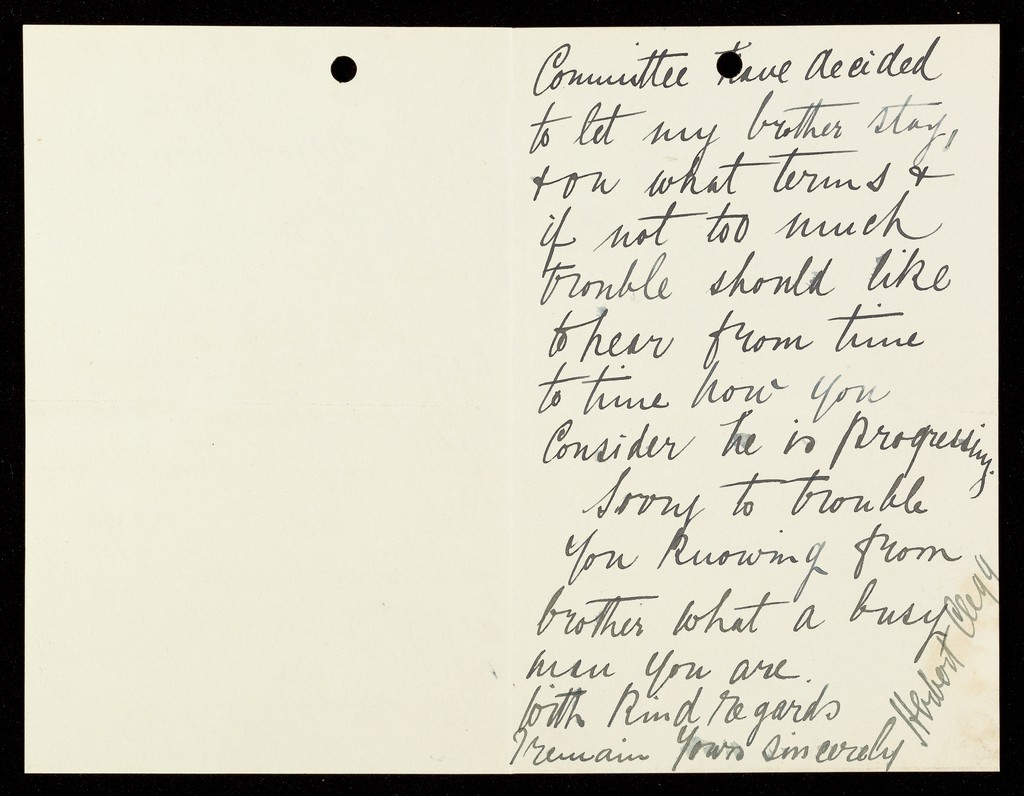 Committee have decided
to let my brother stay,
& on what terms &
if not too much
trouble should like
to hear from time
to time how you
Consider he is progressing.
Sorry to trouble
you knowing from
brother what a busy
man you are.
With kind regards
I remain Yours sincerely
Herbert Clegg